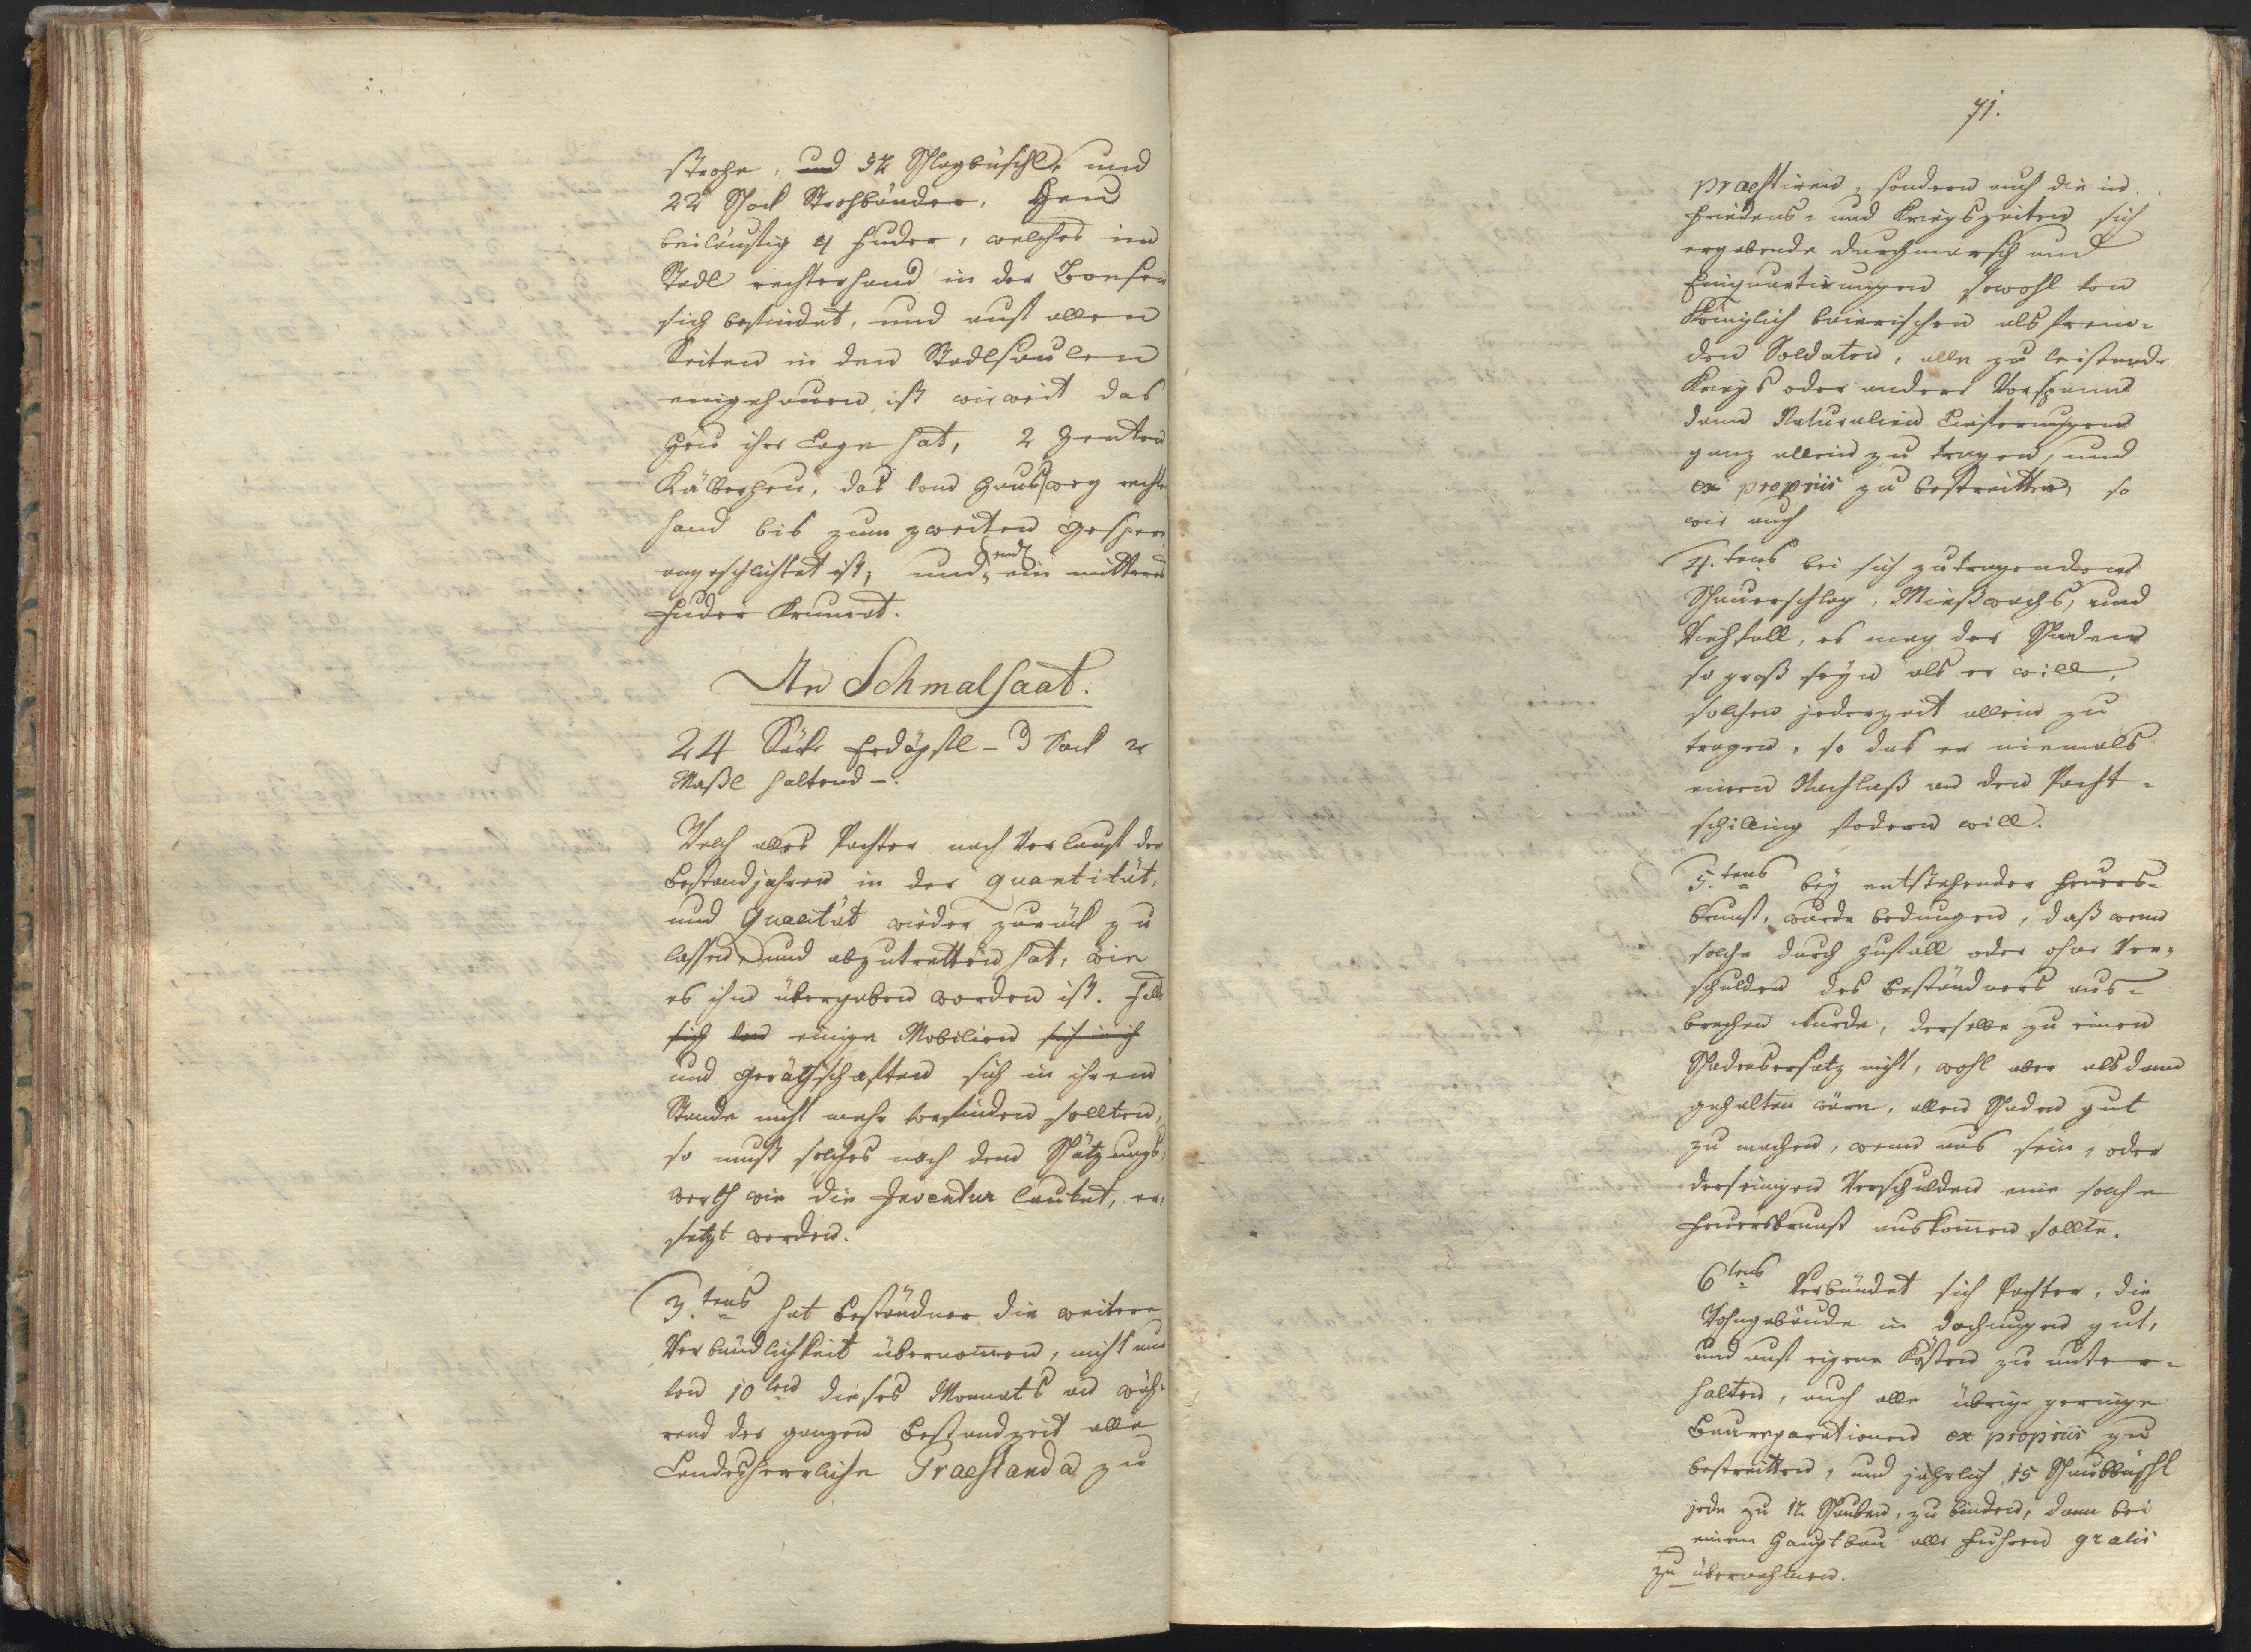 strohe, und 52 Schlagbüschl, und
22 Schock Strohbänder. Heu
beiläufig 4 Fuder, welches im
Stadl rechterhand in der Bonsen
sich befindet, und auf allen
Seiten in den Stadlsaulen
eingehauen ist wie weit das
Heu ihre Lage hat, 2 Zenten
Kälberheu, das vom Hausweg recht
hand bis zum zweiten Gesper
angeschlichtet ist, und endl ein mittere
Fuder Krumat.
An Schmalsaat.
24 Säke Erdäpfl – d Sack 2
Maßl haltend –.
Welch alles Pachter nach Verlauf der
Bestandjahren in der Quantität,
und Qualität wieder zurück zu
lassen und abzutretten hat, wie
es ihm übergeben worden ist. Falls
sich von einige Mobilien sich in ih
und Geräthschaften sich in ihrem
Stande nicht mehr vorfinden sollten,
so muß solches nach dem Schätzungs,
werth wie die Inventur lautet, er,
setzt werden.
3.tens hat Beständner die weitere
Verbündlichkeit übernommen, nicht nur
von 10ten dieses Monats an wäh¬
rend der ganzen Bestandzeit alle
Landesherrliche Praestanda zu
71.
praestiren, sondern auch die in
Friedens- und Kriegszeiten sich
ergebende Durchmarsch und
Einquartirungen sowohl von
Königlich baierischen als frem¬
den Soldaten, alle zu leistende
Kriegs oder andere Vorspann
dann Naturalien Lieferungen
ganz allein zu tragen, und
ex propriis zu bestreitten, so
wie auch
4.tens bei sich zutragenden
Schauerschlag, Mießwachs, und
Viehfall, es mag der Schaden
so groß seyn als er will,
solchen jederzeit allein zu
tragen, so das er niemals
einen Nachlaß an den Pacht¬
schilling fodern will.
5.tens bey entstehender Feuers¬
brunst, wurde bedungen, daß wenn
solche durch Zufall oder ohne Ver¬
schulden des Beständners aus¬
brechen wurde, derselbe zu einen
Schadensersatz nicht, wohl aber alsdann
gehalten wäre, allen Schaden gut
zu machen, wenn aus sein, oder
derseinigen Verschulden eine solche
Feuersbrunst auskommen sollte.
6tens Verbündet sich Pachter, die
Wohngebäude in Dachungen gut,
und auf eigene Kösten zu unter¬
halten, auch alle übrige geringe
Baureparationen ex propriis zu
bestreitten, und jährlich 15 Schaubbüschl
jede zu 12 Schauben, zu binden, dann bei
einem Hauptbau alle Fuhren gratis
zu übernehmen.